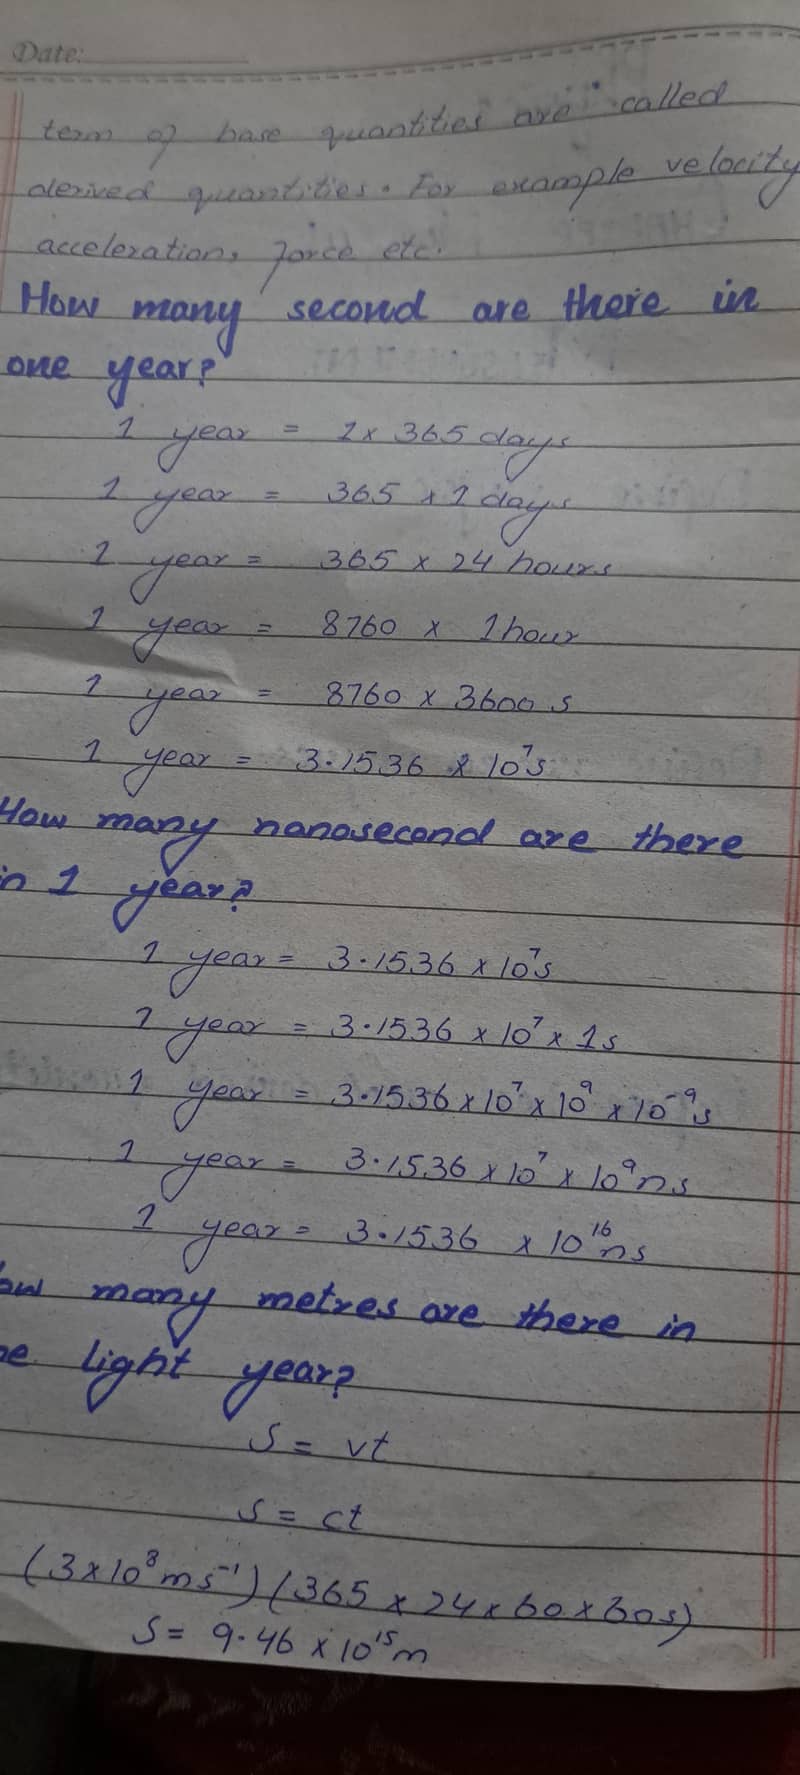 Date:
term of base quantities are called
derived quantities. For example velocity
acceleration, force etc.
How many second are there in
one year?
1 year = 1 x 365 days
1 year = 365 x 1 days
1 year = 365 x 24 hours
1 year = 8760 x 1 hour
1 year = 8760 x 3600 s
1 year = 3.1536 x 10⁷s
How many nanosecond are there
in 1 year?
1 year = 3.1536 x 10⁷s
1 year = 3.1536 x 10⁷ x 1s
1 year = 3.1536 x 10⁷ x 10⁹ x 10⁻⁹s
1 year = 3.1536 x 10⁷ x 10⁹ns
1 year = 3.1536 x 10¹⁶ns
ow many metres are there in
ne light year?
S = vt
S = ct
(3 x 10⁸ms⁻¹) (365 x 24 x 60 x 60s)
S = 9.46 x 10¹⁵m